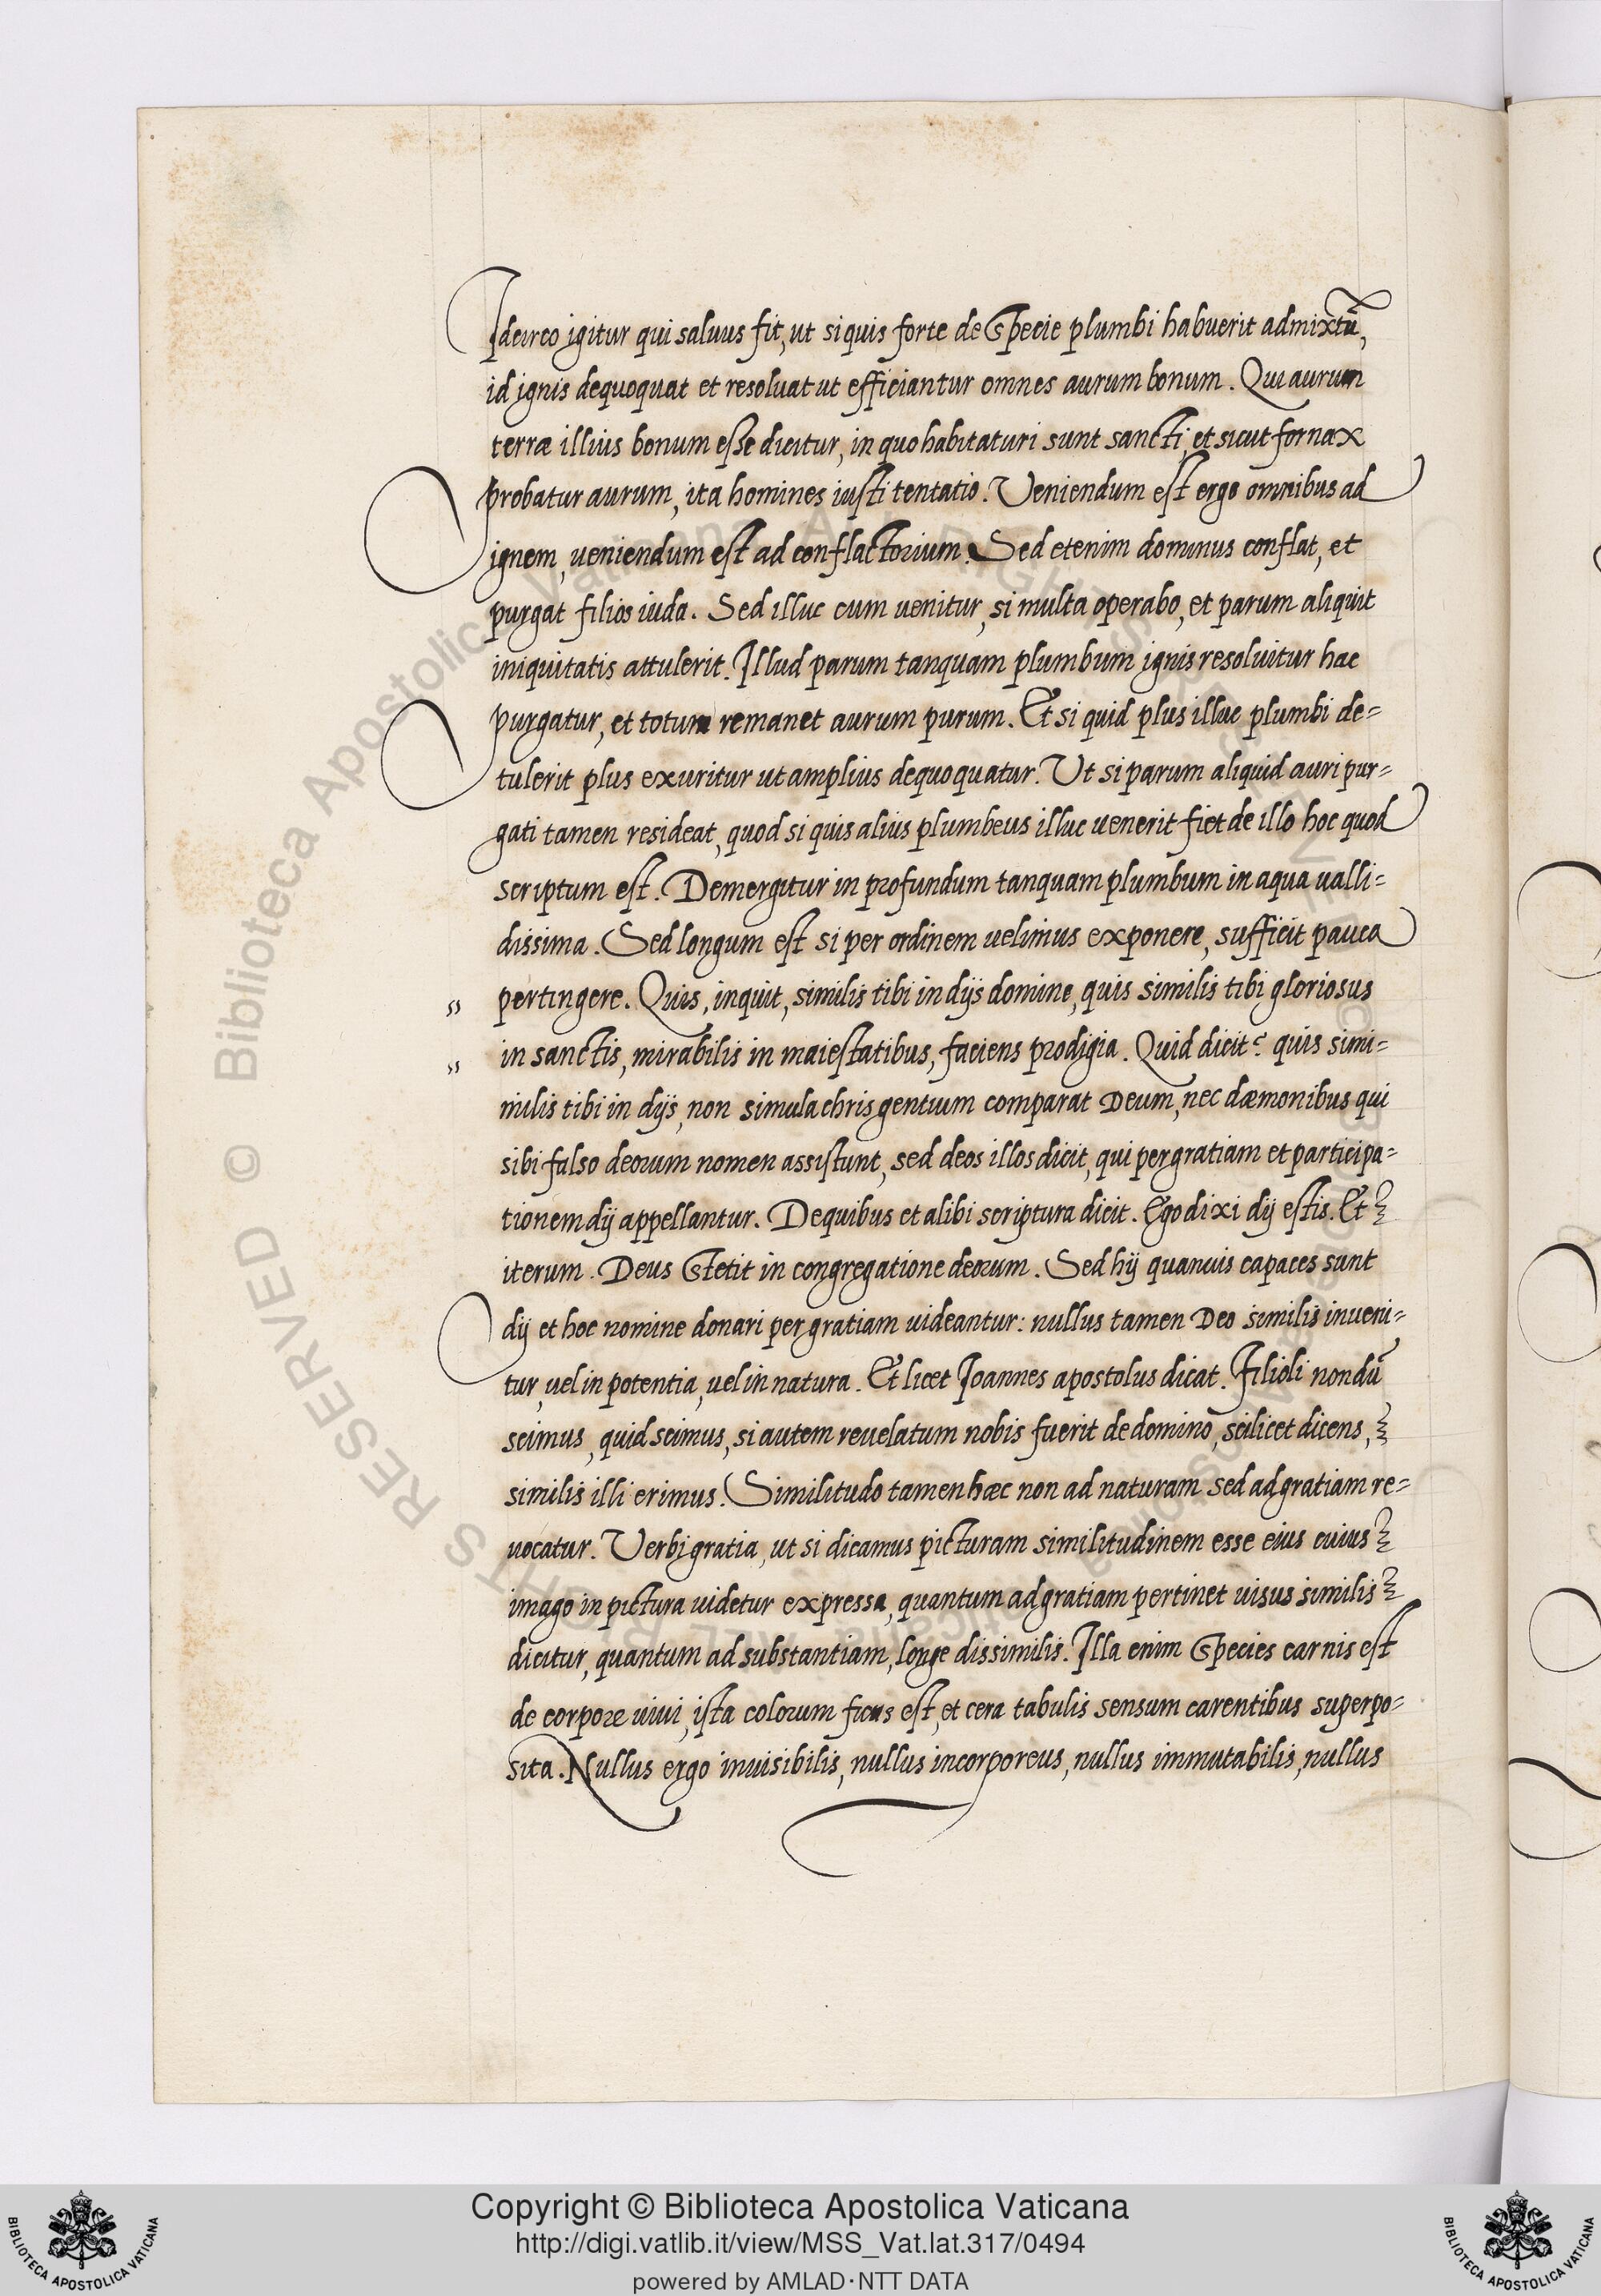 Idcirco igitur qui saluus fit, ut si quis forte de specie plumbi habuerit admixtū,
id ignis dequoquat et resoluat ut efficiantur omnes aurum bonum. Qui aurum
terræ illius bonum esse dicitur, in quo habitaturi sunt sancti, et sicut fornax
probatur aurum, ita homines iusti tentatio. Veniendum est ergo omnibus ad
ignem, ueniendum est ad conflactorium. Sed etenim dominus conflat, et
purgat filios iuda. Sed illuc cum uenitur, si multa operabo, et parum aliquit
iniquitatis attulerit. Illud parum tanquam plumbum ignis resoluitur hac
purgatur, et totum remanet aurum purum. Et si quid plus illuc plumbi de=
tulerit plus exuritur ut amplius dequoquatur. Ut si parum aliquid auri pur=
gati tamen resideat, quod si quis alius plumbeus illuc uenerit fiet de illo hoc quod
scriptum est. Demergitur in profundum tanquam plumbum in aqua ualli=
dissima. Sed longum est si per ordinem uelimus exponere, sufficit pauca
,, pertingere. Quis, inquit, similis tibi in dijs domine, quis similis tibi gloriosus
,, in sanctis, mirabilis in maiestatibus, faciens prodigia. Quid dicit? quis simi=
milis tibi in dijs, non simulachris gentium comparat Deum, nec dæmonibus qui
sibi falso deorum nomen assistunt, sed deos illos dicit, qui per gratiam et participa=
tionem dij appellantur. De quibus et alibi scriptura dicit. Ego dixi dij estis. Et
iterum. Deus stetit in congregatione deorum. Sed hij quanuis capaces sunt
dij et hoc nomine donari per gratiam uideantur: nullus tamen Deo similis inueni=
tur, uel in potentia, uel in natura. Et licet Joannes apostolus dicat. Filioli nondū
scimus, quid scimus, si autem reuelatum nobis fuerit de domino, scilicet dicens,
similis illi erimus. Similitudo tamen hæc non ad naturam sed ad gratiam re=
uocatur. Verbi gratia, ut si dicamus picturam similitudinem esse eius cuius
imago in pictura uidetur expressa, quantum ad gratiam pertinet uisus similis
dicitur, quantum ad substantiam, longe dissimilis. Illa enim species carnis est
de corpore uiui, ista colorum ficus est, et cera tabulis sensum carentibus superpo=
sita. Nullus ergo inuisibilis, nullus incorporeus, nullus immutabilis, nullus
Copyright © Biblioteca Apostolica Vaticana
http://digi.vatlib.it/view/MSS_Vat.lat.317/0494
powered by AMLAD·NTT DATA
BIBLIOTECA APOSTOLICA VATICANA
BIBLIOTECA APOSTOLICA VATICANA